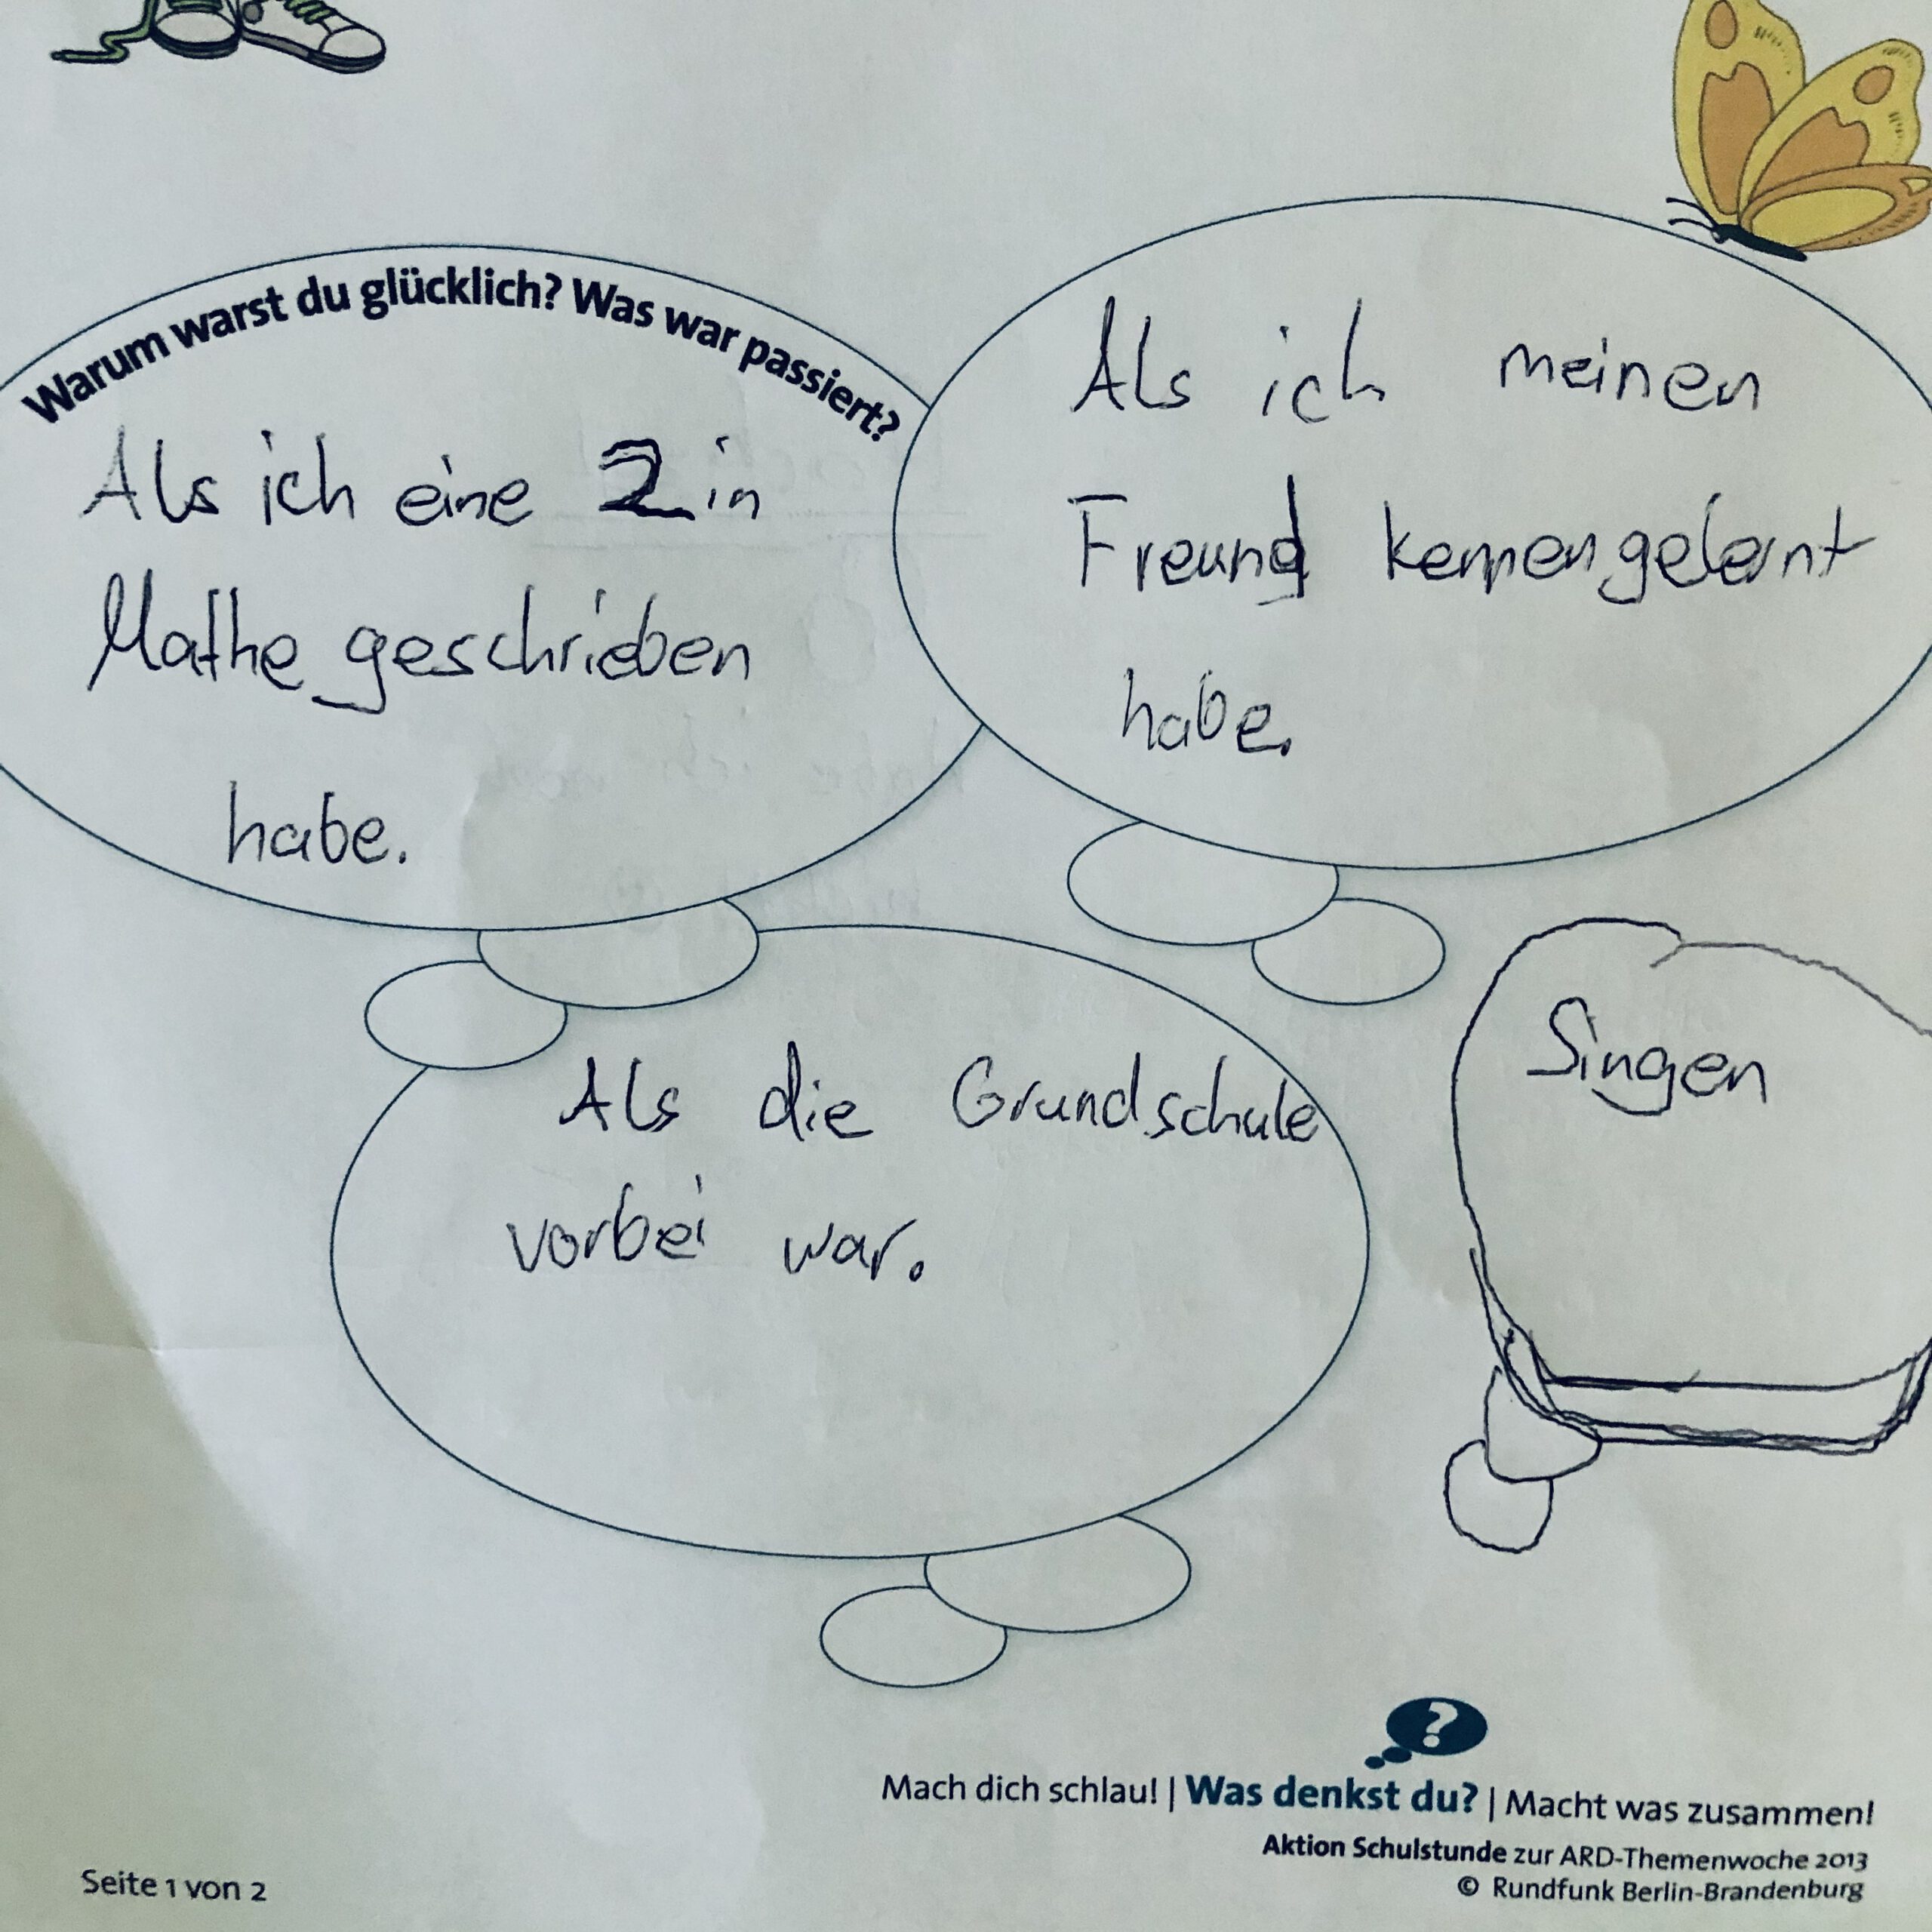 Warum warst du glücklich? Was war passiert?
Als ich eine 2 in
Mathe geschrieben
habe.
Als ich meinen
Freund kennengelernt
habe.
Als die Grundschule
vorbei war.
Singen
Mach dich schlau! | Was denkst du? | Macht was zusammen!
Aktion Schulstunde zur ARD-Themenwoche 2013
© Rundfunk Berlin-Brandenburg
Seite 1 von 2